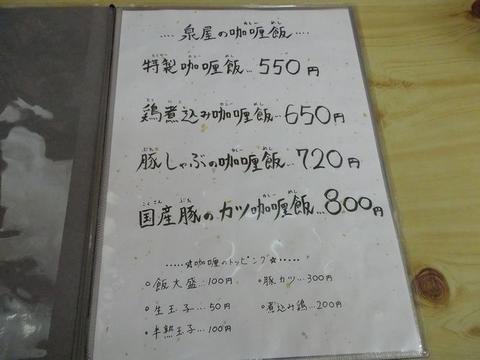 ....泉屋の咖喱飯....
特製咖喱飯...550円
鶏煮込み咖喱飯...650円
豚しゃぶの咖喱飯...720円
国産豚のカツ咖喱飯...800円
......☆咖喱のトッピング☆......
○飯大盛...100円 ○豚カツ...300円
○生玉子...50円 ○煮込み鶏...200円
○半熟玉子...100円